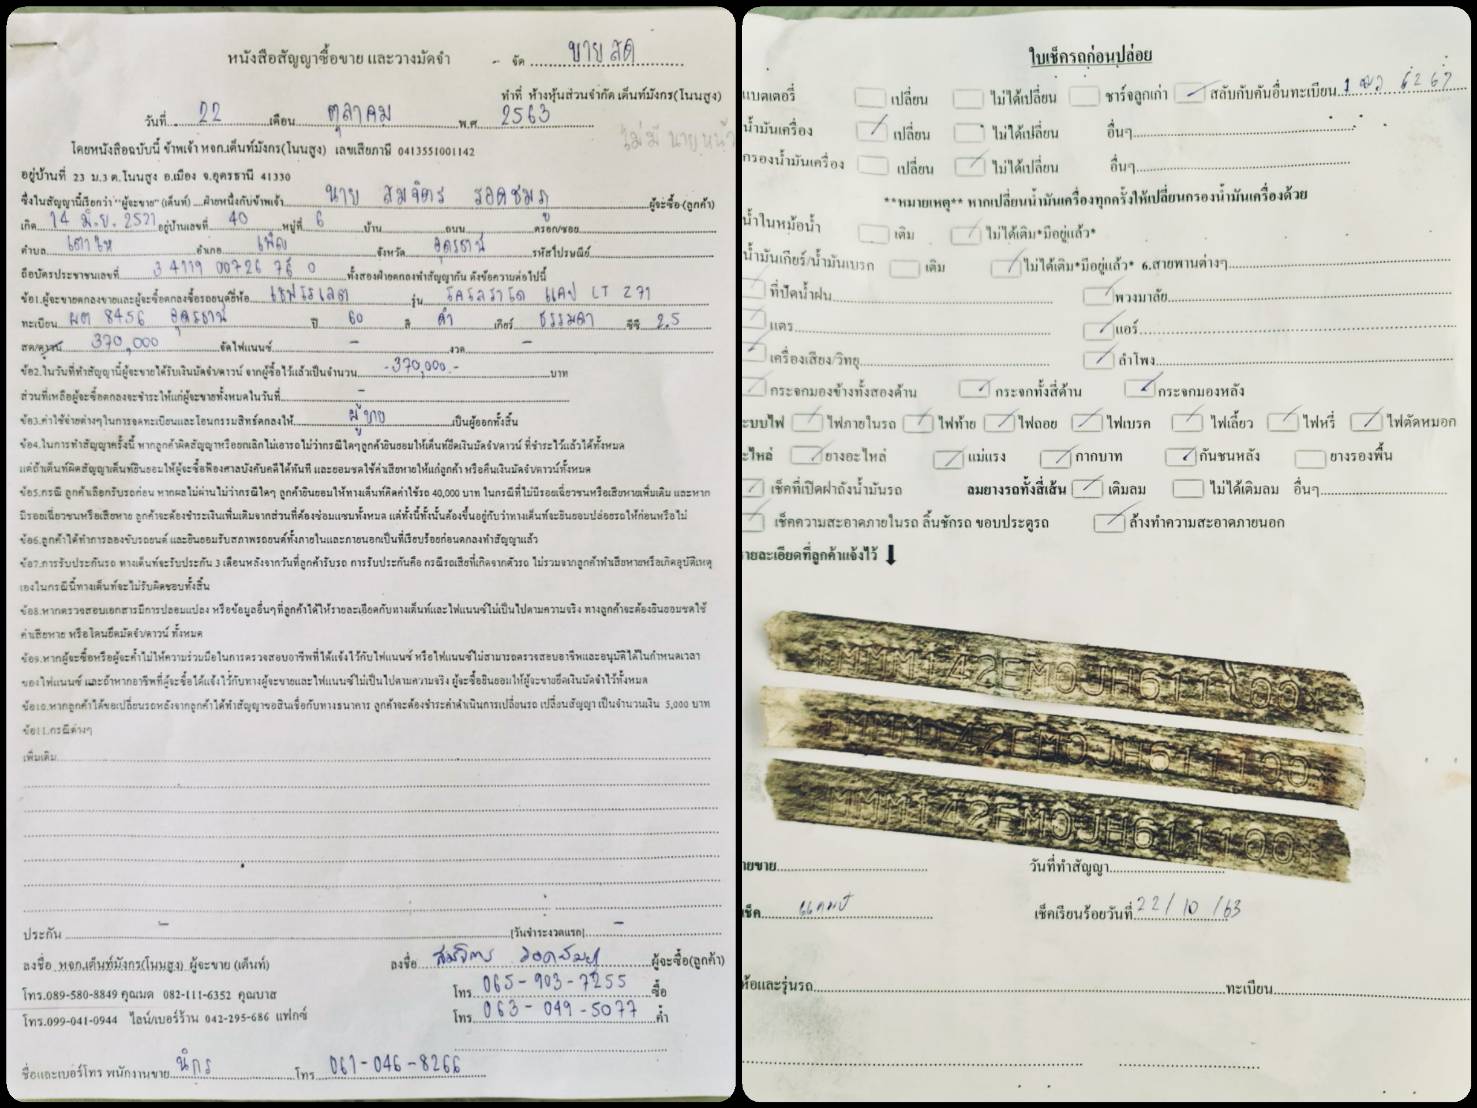 หนังสือสัญญาซื้อขาย และวางมัดจำ - จัด ขายสด
ทำที่ ห้างหุ้นส่วนจำกัด เต็นท์มังกร(โนนสูง)
วันที่ 22 เดือน ตุลาคม พ.ศ. 2563
ไม่มี นายหน้า
โดยหนังสือฉบับนี้ ข้าพเจ้า หจก.เต็นท์มังกร(โนนสูง) เลขเสียภาษี 0413551001142
อยู่บ้านที่ 23 ม.3 ต.โนนสูง อ.เมือง จ.อุดรธานี 41330
ซึ่งในสัญญานี้เรียกว่า "ผู้จะขาย" (เต็นท์) ....ฝ่ายหนึ่งกับข้าพเจ้า นาย สมจิตร รอดชมภู ผู้จะซื้อ(ลูกค้า)
เกิด 14 มิ.ย. 2521 อยู่บ้านเลขที่ 40 หมู่ที่ 6 บ้าน ถนน ตรอก/ซอย
ตำบล เตาไห อำเภอ เพ็ญ จังหวัด อุดรธานี รหัสไปรษณีย์
ถือบัตรประชาชนเลขที่ 3 4119 00726 76 0 ทั้งสองฝ่ายตกลงทำสัญญากัน ดังข้อความต่อไปนี้
ข้อ1.ผู้จะขายตกลงขายและผู้จะซื้อตกลงซื้อรถยนต์ยี่ห้อ เชฟโรเลต รุ่น โคโลราโด แคป LT 271
ทะเบียน ผต 8456 อุดรธานี ปี 60 สี ดำ เกียร์ ธรรมดา ซีซี 2.5
สด/ดาวน์ 370,000 จัดไฟแนนซ์ - งวด -
ข้อ2.ในวันที่ทำสัญญานี้ผู้จะขายได้รับเงินมัดจำ/ดาวน์ จากผู้ซื้อไว้แล้วเป็นจำนวน -370,000.- บาท
ส่วนที่เหลือผู้จะซื้อตกลงจะชำระให้แก่ผู้จะขายทั้งหมดในวันที่ -
ข้อ3.ค่าใช้จ่ายต่างๆในการจดทะเบียนและโอนกรรมสิทธ์ตกลงให้ ผู้ขาย เป็นผู้ออกทั้งสิ้น
ข้อ4.ในการทำสัญญาครั้งนี้ หากลูกค้าผิดสัญญาหรือยกเลิกไม่เอารถ ไม่ว่ากรณีใดๆลูกค้ายินยอมให้เต็นท์ยึดเงินมัดจำ/ดาวน์ ที่ชำระไว้แล้วได้ทั้งหมด
แต่ถ้าเต็นท์ผิดสัญญาเต็นท์ยินยอมให้ผู้จะซื้อฟ้องศาลบังคับคดีได้ทันที และยอมชดใช้ค่าเสียหายให้แก่ลูกค้า หรือคืนเงินมัดจำ/ดาวน์ทั้งหมด
ข้อ5.กรณี ลูกค้าเลือกรับรถก่อน หากผลไม่ผ่านไม่ว่ากรณีใดๆ ลูกค้ายินยอมให้ทางเต็นท์คิดค่าใช้รถ 40,000 บาท ในกรณีที่ไม่มีรอยเฉี่ยวชนหรือเสียหายเพิ่มเติม และหาก
มีรอยเฉี่ยวชนหรือเสียหาย ลูกค้าจะต้องชำระเงินเพิ่มเติมจากส่วนที่ต้องซ่อมแซมทั้งหมด แต่ทั้งนี้ทั้งนั้นต้องขึ้นอยู่กับว่าทางเต็นท์จะยินยอมปล่อยรถให้ก่อนหรือไม่
ข้อ6.ลูกค้าได้ทำการลองขับรถยนต์ และยินยอมรับสภาพรถยนต์ทั้งภายในและภายนอกเป็นที่เรียบร้อยก่อนตกลงทำสัญญาแล้ว
ข้อ7.การรับประกันรถ ทางเต็นท์จะรับประกัน 3 เดือนหลังจากวันที่ลูกค้ารับรถ การรับประกันคือ กรณีรถเสียที่เกิดจากตัวรถ ไม่รวมจากลูกค้าทำเสียหายหรือเกิดอุบัติเหตุ
เองในกรณีนี้ทางเต็นท์จะไม่รับผิดชอบทั้งสิ้น
ข้อ8.หากตรวจสอบเอกสารมีการปลอมแปลง หรือข้อมูลอื่นๆที่ลูกค้าได้ให้รายละเอียดกับทางเต็นท์และไฟแนนซ์ไม่เป็นไปตามความจริง ทางลูกค้าจะต้องยินยอมชดใช้
ค่าเสียหาย หรือโดนยึดมัดจำ/ดาวน์ ทั้งหมด
ข้อ9.หากผู้จะซื้อหรือผู้จะค้ำไม่ให้ความร่วมมือในการตรวจสอบอาชีพที่ได้แจ้งไว้กับไฟแนนซ์ หรือไฟแนนซ์ไม่สามารถตรวจสอบอาชีพและอนุมัติได้ในกำหนดเวลา
ของไฟแนนซ์ และถ้าหากอาชีพที่ผู้จะซื้อได้แจ้งไว้กับทางผู้จะขายและไฟแนนซ์ไม่เป็นไปตามความจริง ผู้จะซื้อยินยอมให้ผู้จะขายยึดเงินมัดจำไว้ทั้งหมด
ข้อ10.หากลูกค้าได้ขอเปลี่ยนรถหลังจากลูกค้าได้ทำสัญญาขอสินเชื่อกับทางธนาคาร ลูกค้าจะต้องชำระค่าดำเนินการเปลี่ยนรถ เปลี่ยนสัญญา เป็นจำนวนเงิน 5,000 บาท
ข้อ11.กรณีต่างๆ
เพิ่มเติม
ประกัน - (วันชำระงวดแรก) -
ลงชื่อ หจก.เต็นท์มังกร(โนนสูง) ผู้จะขาย (เต็นท์) ลงชื่อ สมจิตร รอดชมภู ผู้จะซื้อ(ลูกค้า)
โทร.089-580-8849 คุณมด 082-111-6352 คุณบาส โทร. 065-903-7255 ซื้อ
โทร.099-041-0944 ไลน์/เบอร์ร้าน 042-295-686 แฟกซ์ โทร. 063-049-5077 ค้ำ
ชื่อและเบอร์โทร พนักงานขาย นิกร โทร 061-046-8266
ใบเช็ครถก่อนปล่อย
แบตเตอรี่ เปลี่ยน ไม่ได้เปลี่ยน ชาร์จลูกเก่า สลับกับคันอื่นทะเบียน 6267
น้ำมันเครื่อง เปลี่ยน ไม่ได้เปลี่ยน อื่นๆ
กรองน้ำมันเครื่อง เปลี่ยน ไม่ได้เปลี่ยน อื่นๆ
**หมายเหตุ** หากเปลี่ยนน้ำมันเครื่องทุกครั้งให้เปลี่ยนกรองน้ำมันเครื่องด้วย
น้ำในหม้อน้ำ เติม ไม่ได้เติม*มีอยู่แล้ว*
น้ำมันเกียร์/น้ำมันเบรก เติม ไม่ได้เติม*มีอยู่แล้ว* 6.สายพานต่างๆ
ที่ปัดน้ำฝน พวงมาลัย
แตร แอร์
เครื่องเสียง/วิทยุ ลำโพง
กระจกมองข้างทั้งสองด้าน กระจกทั้งสี่ด้าน กระจกมองหลัง
ะบบไฟ ไฟภายในรถ ไฟท้าย ไฟถอย ไฟเบรค ไฟเลี้ยว ไฟหรี่ ไฟตัดหมอก
ะไหล่ ยางอะไหล่ แม่แรง กากบาท กันชนหลัง ยางรองพื้น
เช็คที่เปิดฝาถังน้ำมันรถ ลมยางรถทั้งสี่เส้น เติมลม ไม่ได้เติมลม อื่นๆ
เช็คความสะอาดภายในรถ ลิ้นชักรถ ขอบประตูรถ ล้างทำความสะอาดภายนอก
ายละเอียดที่ลูกค้าแจ้งไว้
MMM142EM0JH611100*
MMM142EM0JH611100*
MMM142EM0JH611100*
ายขาย วันที่ทำสัญญา
เช็ค เช็คเรียบร้อยวันที่ 22/10/63
ห้อและรุ่นรถ ทะเบียน